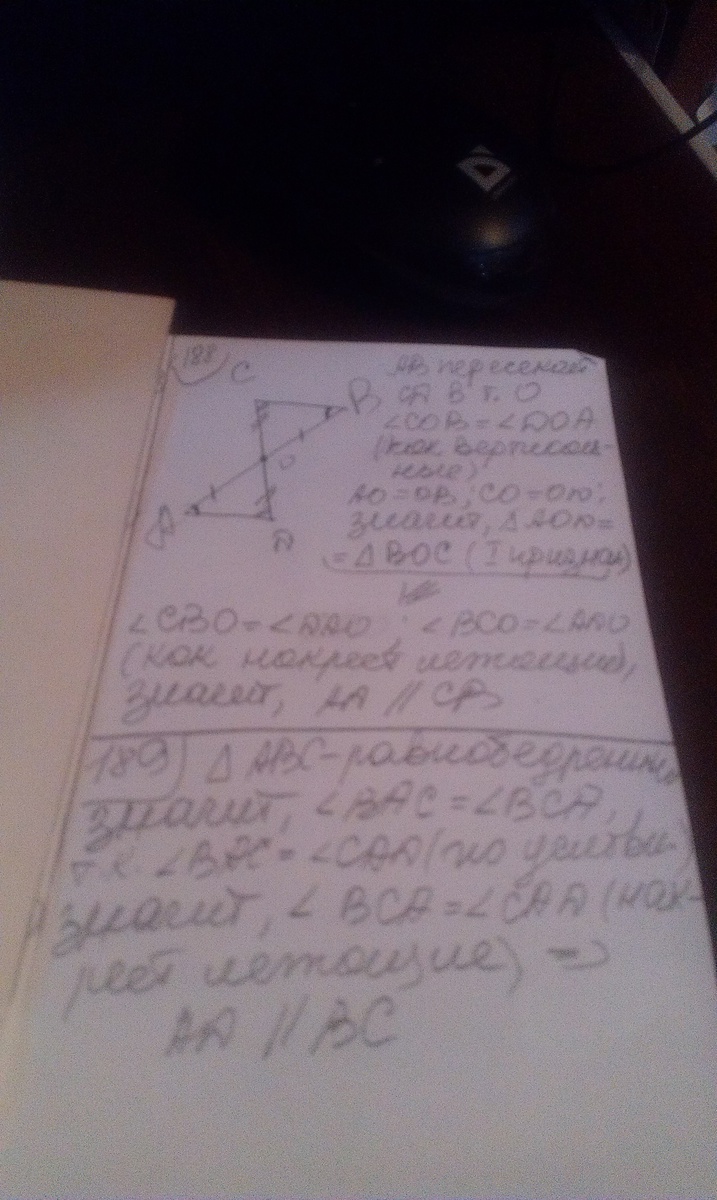 188
C
B
O
A
D
AB пересекает
CD в т. O
∠COB = ∠DOA
(как вертикаль-
ные)
AO = OB, CO = OD.
значит, △AOD =
= △BOC (I признак)
∠CBO = ∠DAO ∠BCO = ∠ADO
(как накрест лежащие),
значит, AD // CB
189) △ ABC - равнобедренный,
значит, ∠BAC = ∠BCA,
т.к. ∠BAC = ∠CAD (по условию)
значит, ∠ BCA = ∠CAD (нак-
рест лежащие) =>
AD // BC